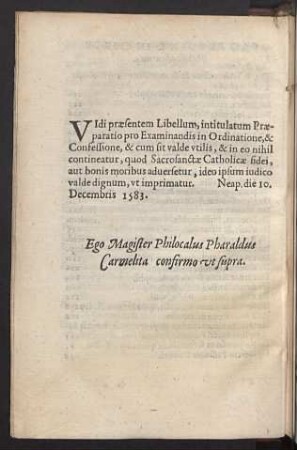 VIdi præsentem Libellum, intitulatum Præ-
paratio pro Examinandis in Ordinatione, &
Confessione, & cum sit valde vtilis, & in eo nihil
contineatur, quod Sacrosanctæ Catholicæ fidei,
aut bonis moribus aduersetur, ideo ipsum iudico
valde dignum, vt imprimatur. Neap. die 10.
Decembris 1583.
Ego Magister Philocalus Pharaldus
Carmelita confirmo vt supra.